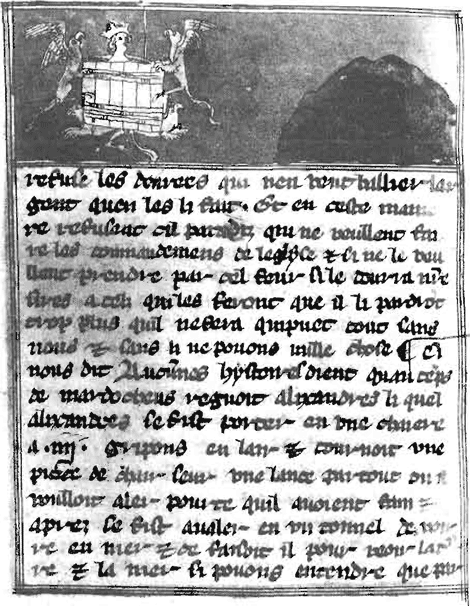 refuse les denrees qui nen veut baillier lar
gent quen les li fait. Et en ceste manie
re refusent cil paradis qui ne veullent fai
re les commandemens de leglyse et si ne le veu
llent prendre par cel feur si le donra nre
sires a ceu qui les feront que il li pardroit
trop plus quil ne fera qui puet tout sans
nous et sans li ne pouons nulle chose Ci
nous dit Aucunes hystoires dient quau teps
de mardocheus regnoit alixandres li quel
alixandres se fist porter en une chaiere
a .iiij. gripons en lair et tournoit une
piece de char seur une lance partout ou il
vouloit aler pour ce quil auoient faim et
apres se fist aualer en un tonnel de voir
re en mer et ce faisoit il pour veoir lai
re et la mer si pouons entendre que par